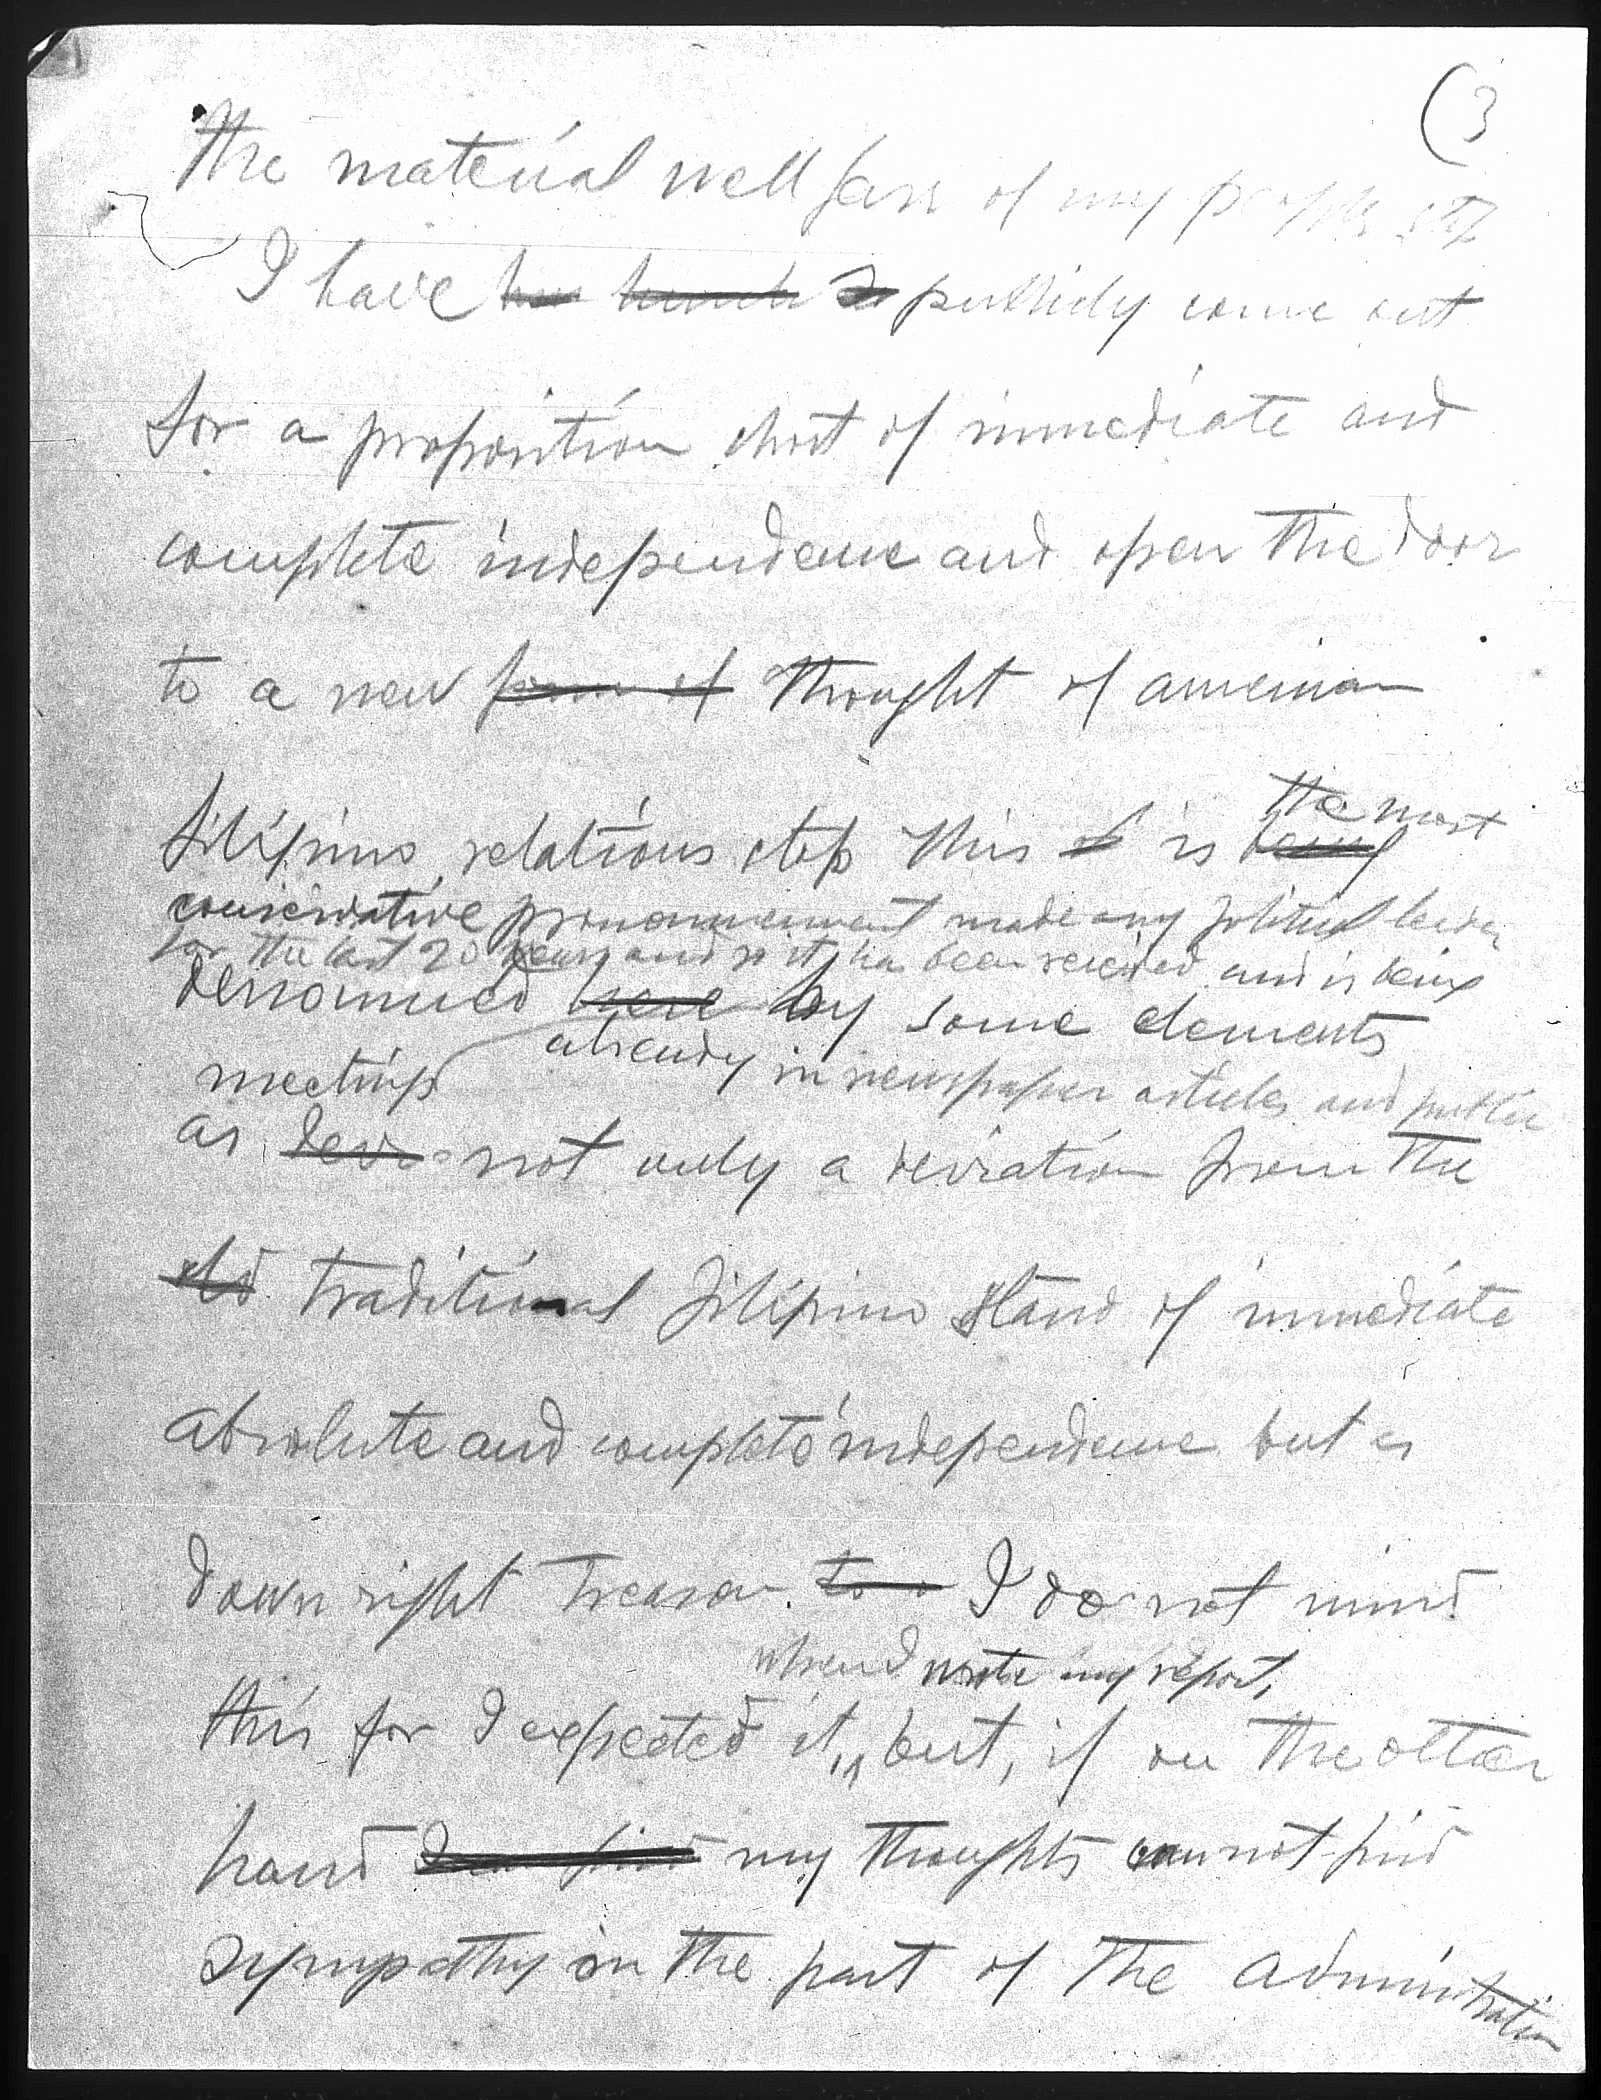 (3
The material well fare of my people stop
I have publicly come out
for a proposition short of immediate and
complete independence and open the door
to a new form of thought of american
filipino relations stop This is being
the most
conservative pronouncement made any political leader
for the last 20 years and so it has been received and is being
denounced here by some elements
already in newspaper articles and public
meetings
as not only a deviation from the
old traditional filipino stand of immediate
absolute and complete independence but as
down right treason. I do not mind
when I wrote my report,
this for I expected it, but, if on the other
hand I can find my thoughts cannot find
sympathy on the part of the administration